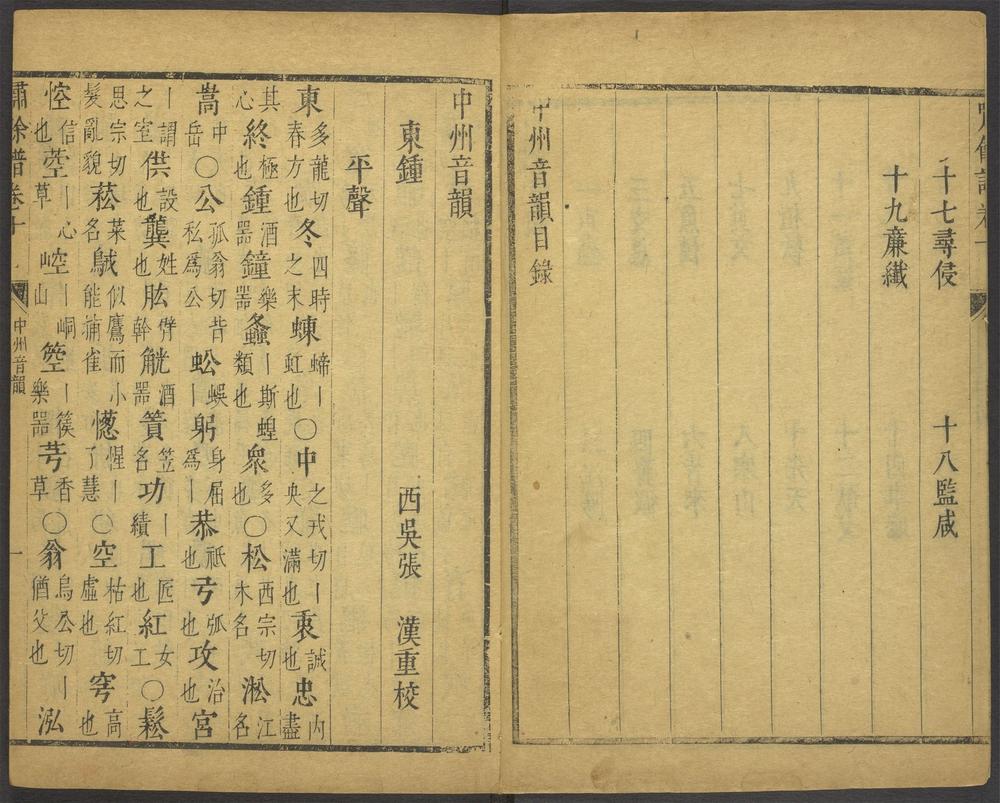 嘯餘譜卷十
十七尋侵　十八監咸
十九廉纖
中州音韻目錄
中州音韻
東鍾　西吳張　漢重校
平聲
東多龍切春方也冬四時之末蝀螮丨虹也〇中之戎切丨央又滿也衷誠也忠內盡
其心終極也鍾酒器鐘樂器螽丨斯蝗類也衆多也〇松西宗切木名淞江名
嵩中岳〇公孤翁切背私爲公蚣蜈丨躬身屈爲丨恭祇也弓弧也攻治也宮
丨謂之室供設也龔姓也肱臂幹觥酒器篢笠名功丨績工匠也紅女工〇鬆
思宗切髮亂貌菘菜名似鷹而小能捕雀憽惺丨了慧〇空枯紅切虛也穹高也
悾信也丨心草崆丨峒山箜丨篌樂器芎香草〇翁烏公切丨猶父也泓
嘯餘譜卷十　中州音韻　一